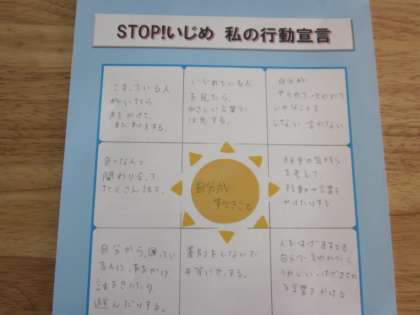 STOP!いじめ 私の行動宣言
こまっている人
がいたら
声をかけて
いじめている人
を見たら、
やさしい言葉で
注意する。
自分が
やられて・言われて
いやなことを
しない 言わない
色々な人と
関わり合って
たくさん話す。
自分が
すべきこと
相手の気持ち
を考えて
行動や言葉を
かけたりする
自分から、困ってい
る人に、声をかけ
話をきいたり
遊んだりする。
差別をしないで
人をはげませる、
自分が言われたら
うれしい
る言葉をかける